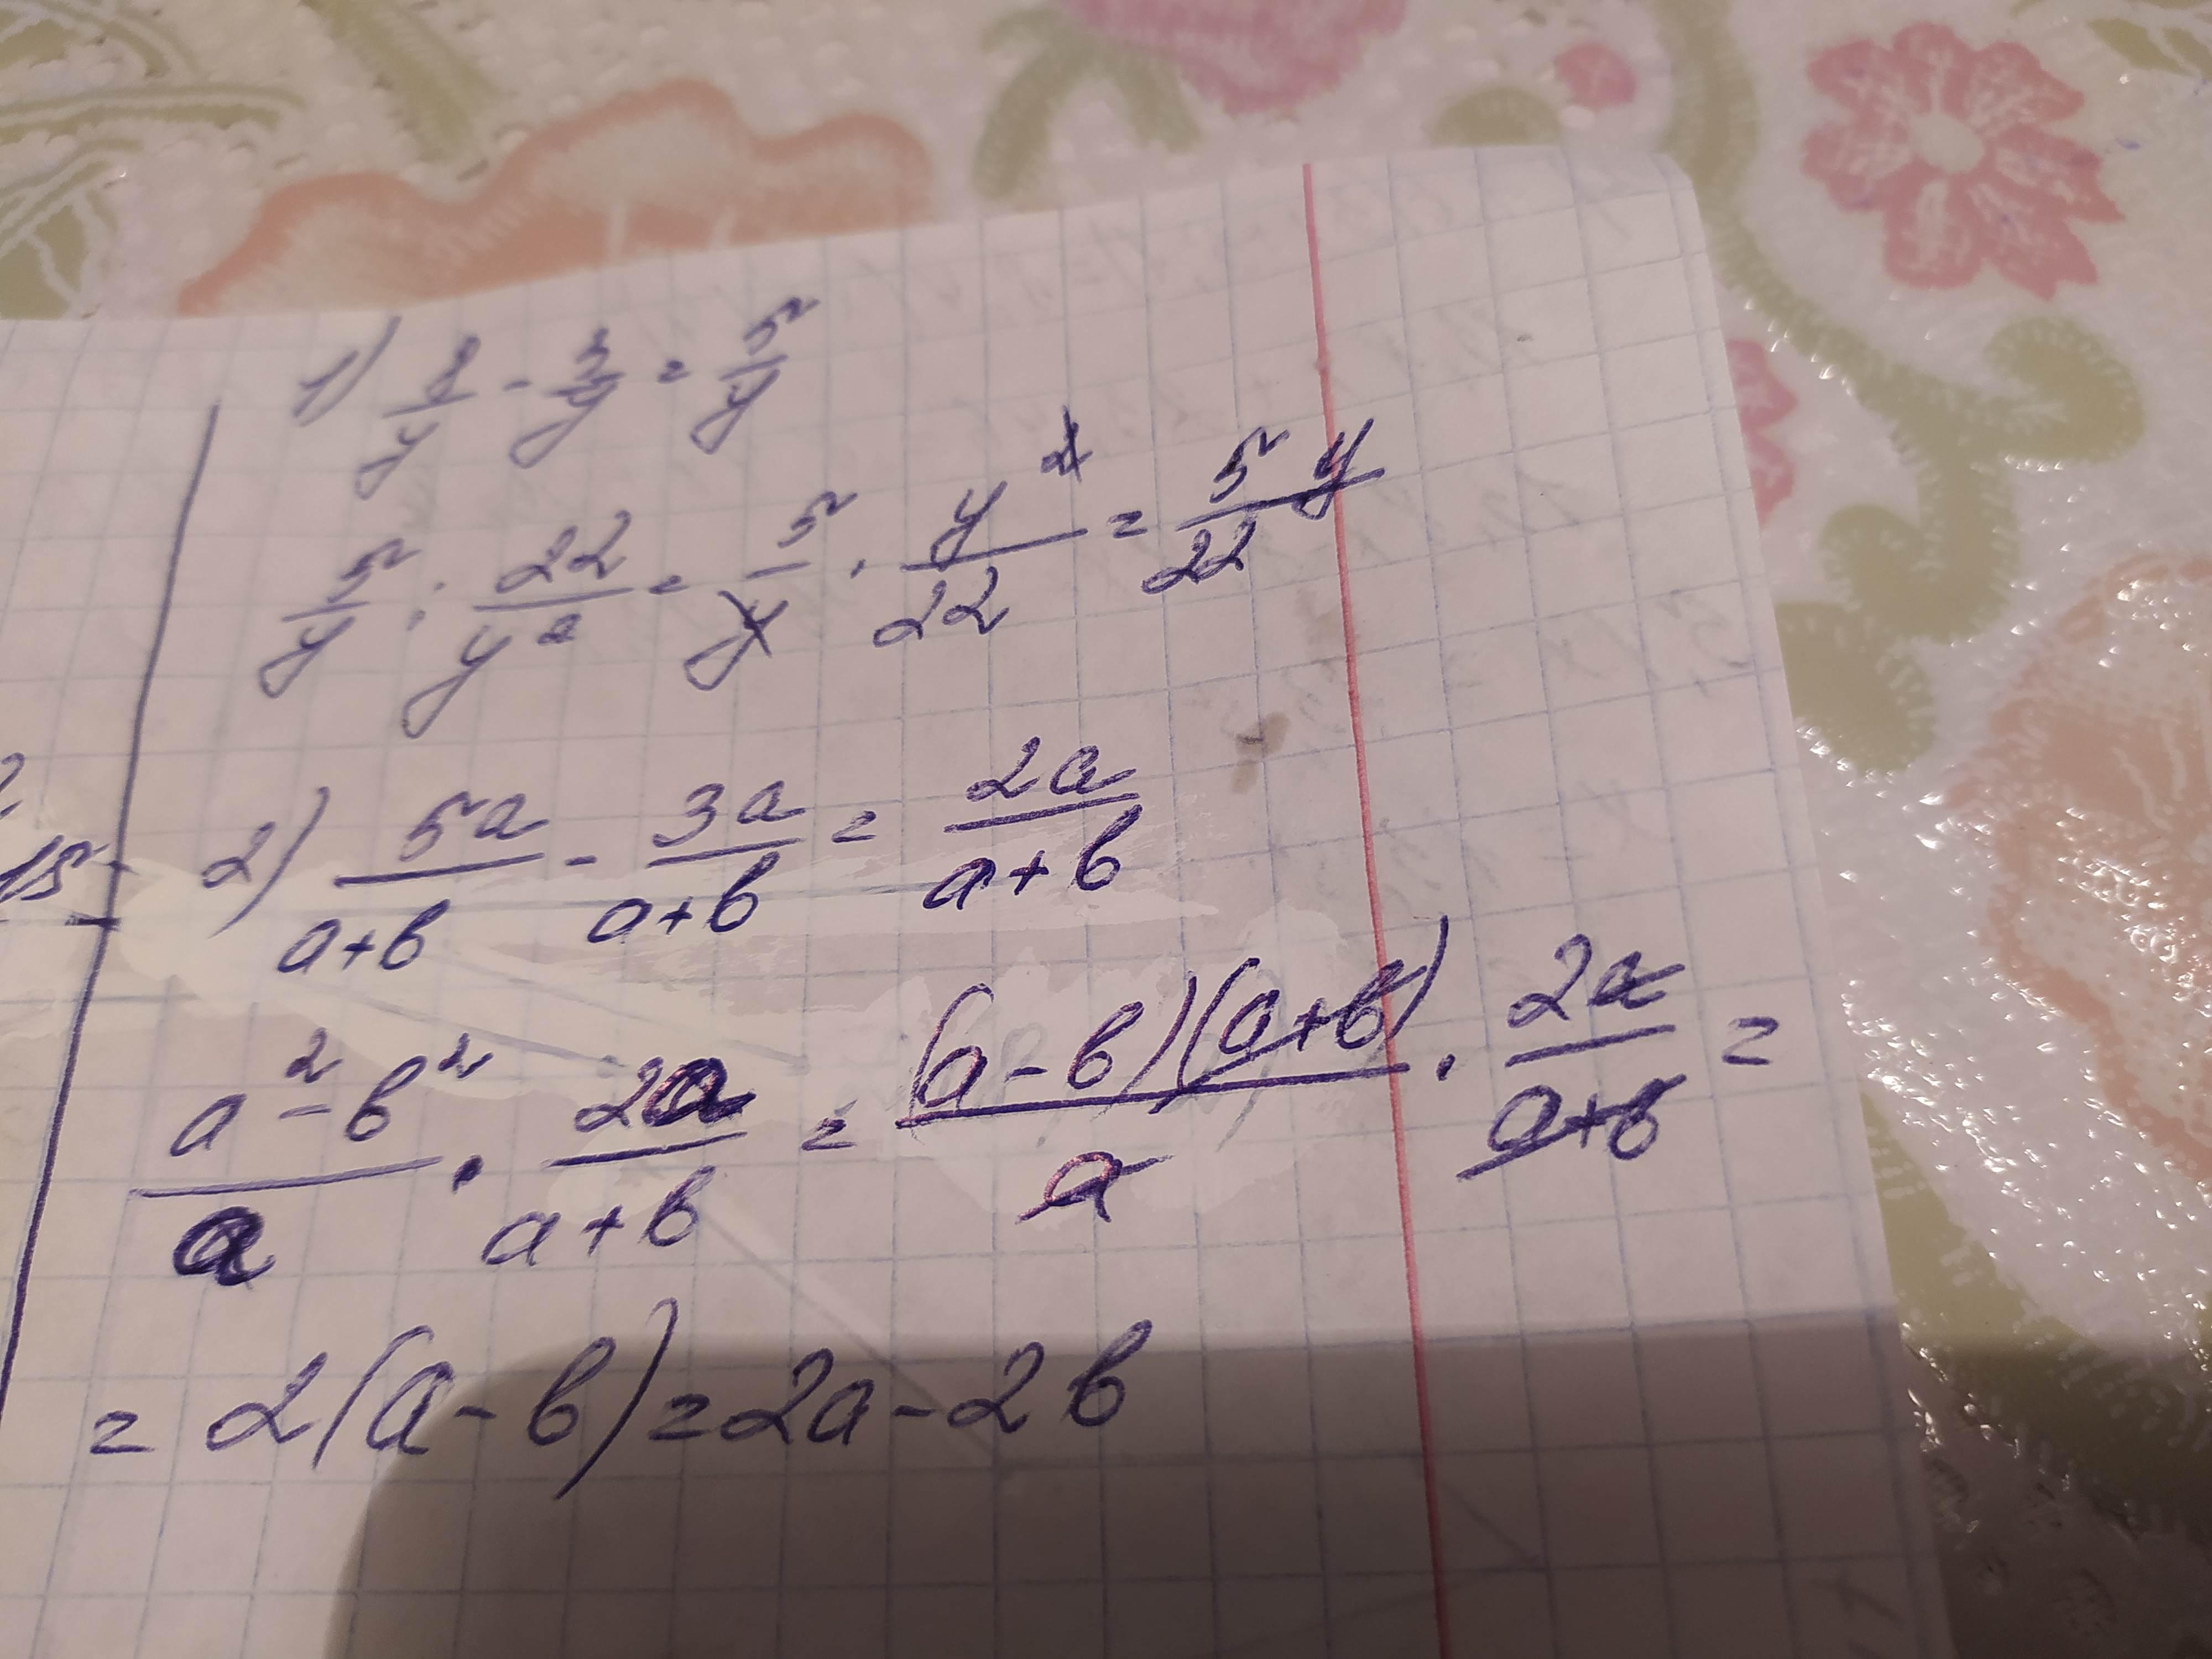 1) 8/y - 3/y = 5/y
5/y : 22/y² = 5/y · y²/22 = 5y/22
2) 5a/a+b - 3a/a+b = 2a/a+b
15
a²-b²/a · 2a/a+b = (a-b)(a+b)/a · 2a/a+b =
= 2(a-b) = 2a-2b